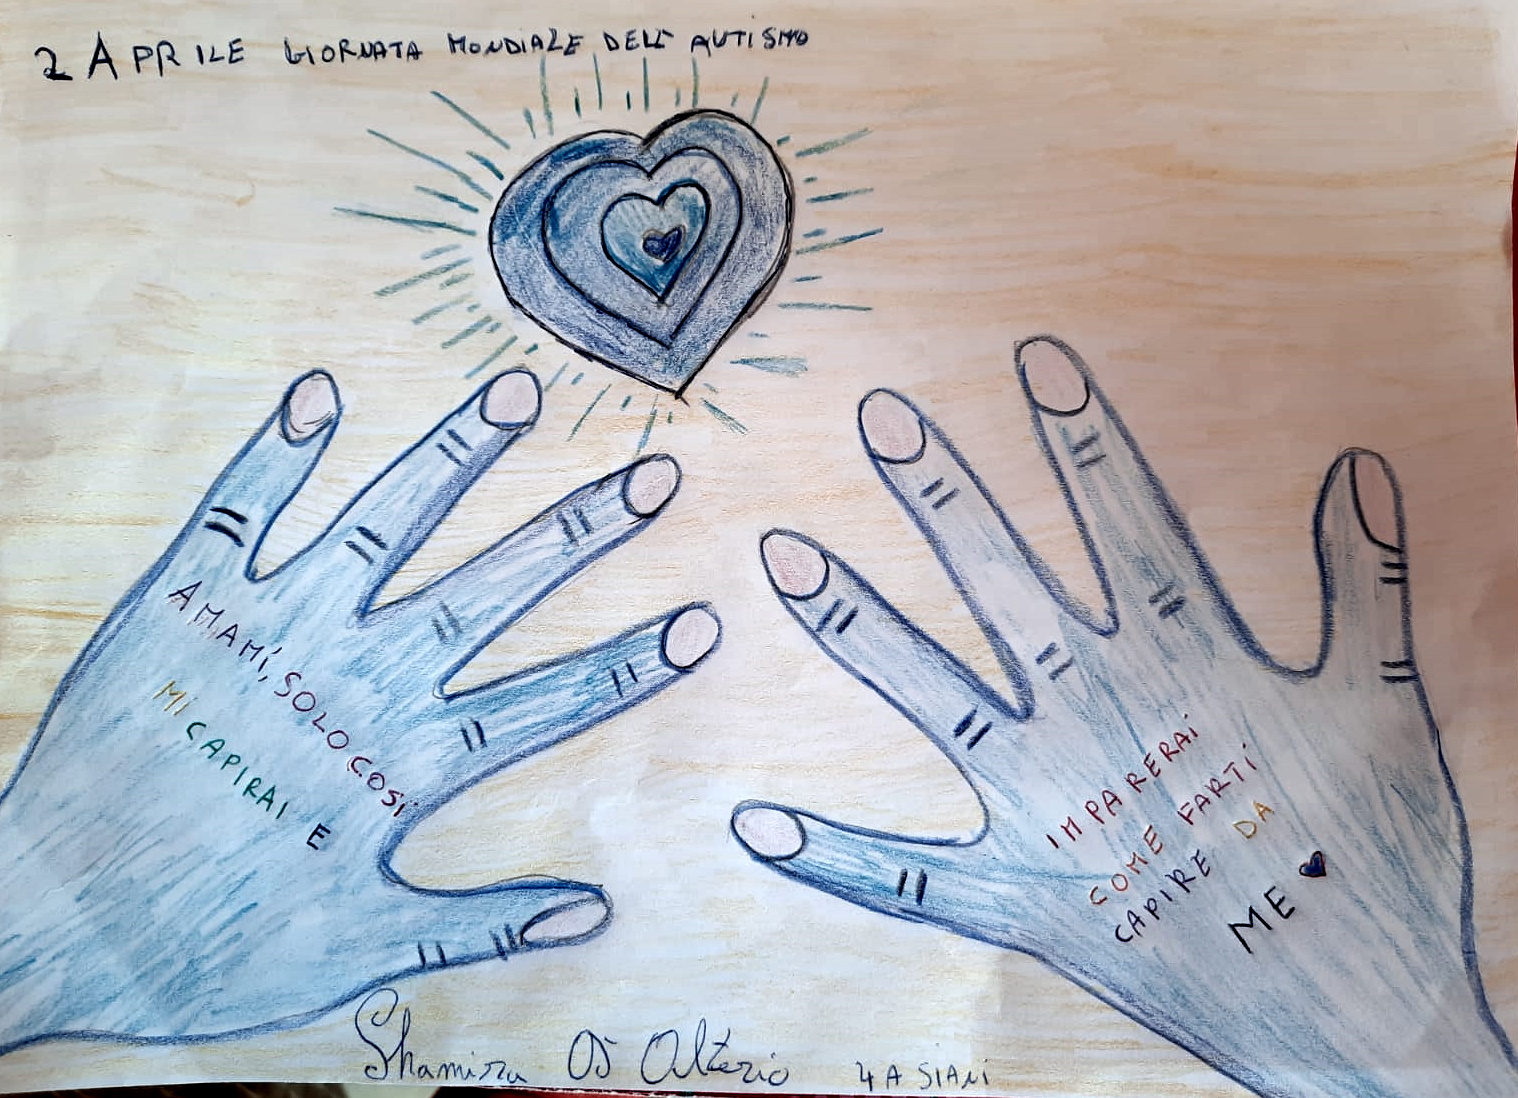 2 APRILE GIORNATA MONDIALE DELL'AUTISMO
AMAMI, SOLO COSI
MI CAPIRAI E
IMPARERAI
COME FARTI
CAPIRE DA
ME
Shamira Di Alterio 4 A SIANI